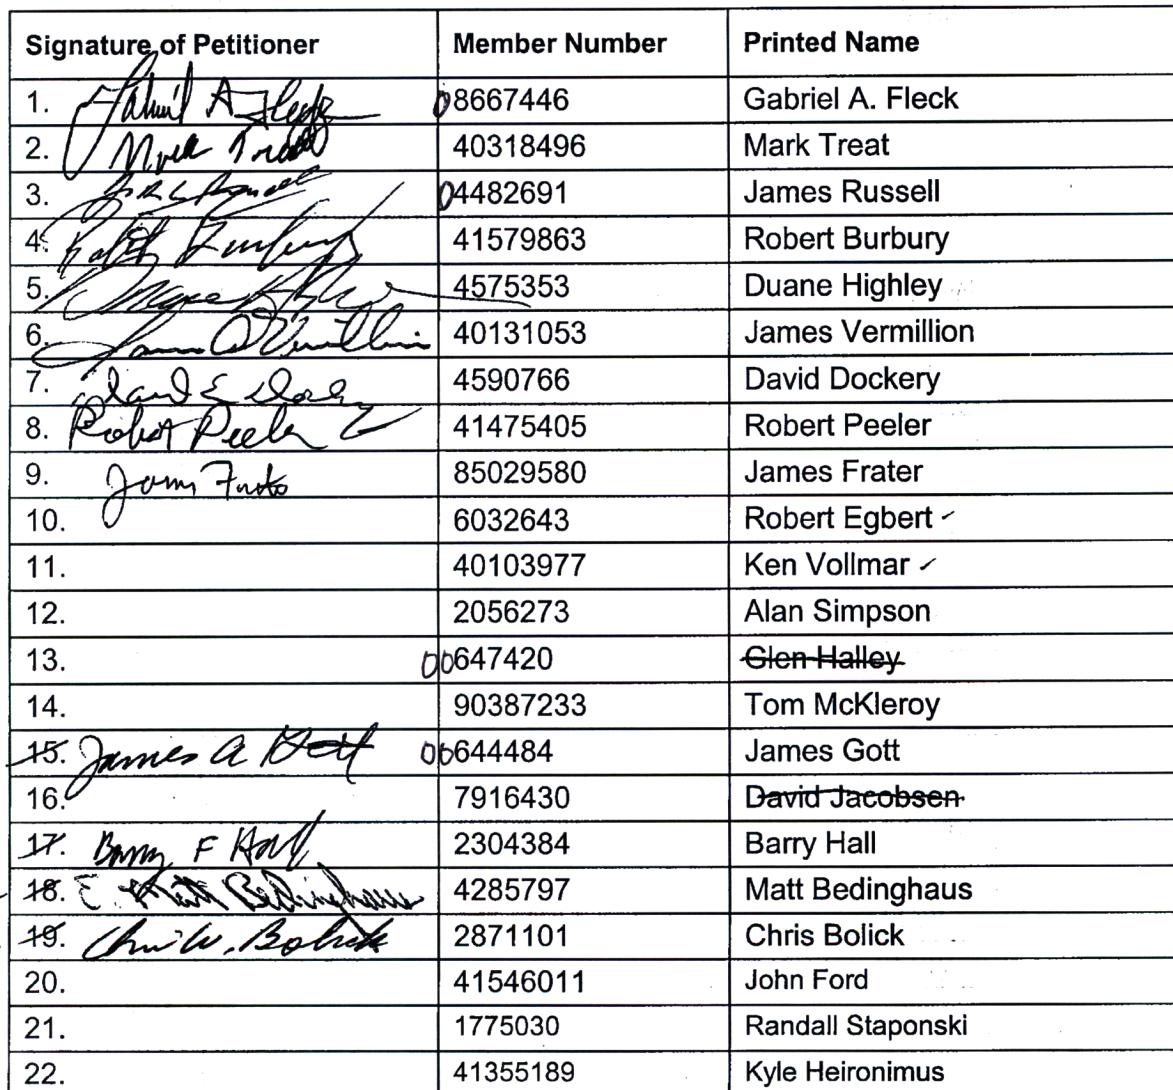 Signature of Petitioner Member Number Printed Name
1. Gabriel A Fleck 08667446 Gabriel A. Fleck
2. Mark Treat 40318496 Mark Treat
3. 04482691 James Russell
4. Robert Burbury 41579863 Robert Burbury
5. Duane Highley 4575353 Duane Highley
6. James Vermillion 40131053 James Vermillion
7. David E Dockery 4590766 David Dockery
8. Robert Peeler 41475405 Robert Peeler
9. James Frater 85029580 James Frater
10. 6032643 Robert Egbert ✓
11. 40103977 Ken Vollmar ✓
12. 2056273 Alan Simpson
13. 00647420 Glen Halley
14. 90387233 Tom McKleroy
15. James A Gott 00644484 James Gott
16. 7916430 David Jacobsen
17. Barry F Hall 2304384 Barry Hall
18. E. Matt Bedinghaus 4285797 Matt Bedinghaus
19. Chris W. Bolick 2871101 Chris Bolick
20. 41546011 John Ford
21. 1775030 Randall Staponski
22. 41355189 Kyle Heironimus